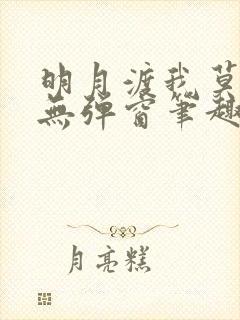 明月渡我莫
無彈窗筆趣
月亮糕